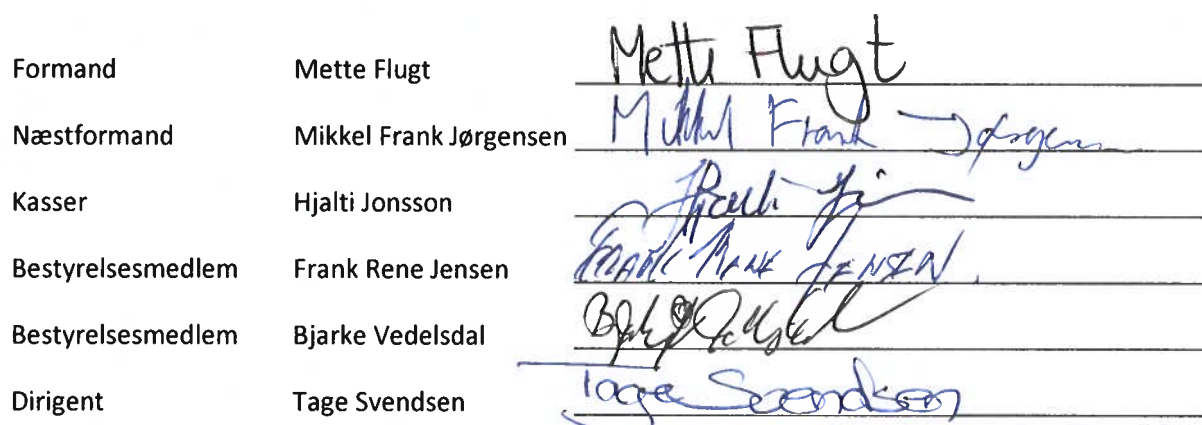 Formand Mette Flugt Mette Flugt
Næstformand Mikkel Frank Jørgensen Mikkel Frank Jørgensen
Kasser Hjalti Jonsson Hjalti
Bestyrelsesmedlem Frank Rene Jensen FRANK RENE JENSEN.
Bestyrelsesmedlem Bjarke Vedelsdal
Dirigent Tage Svendsen Tage Svendsen